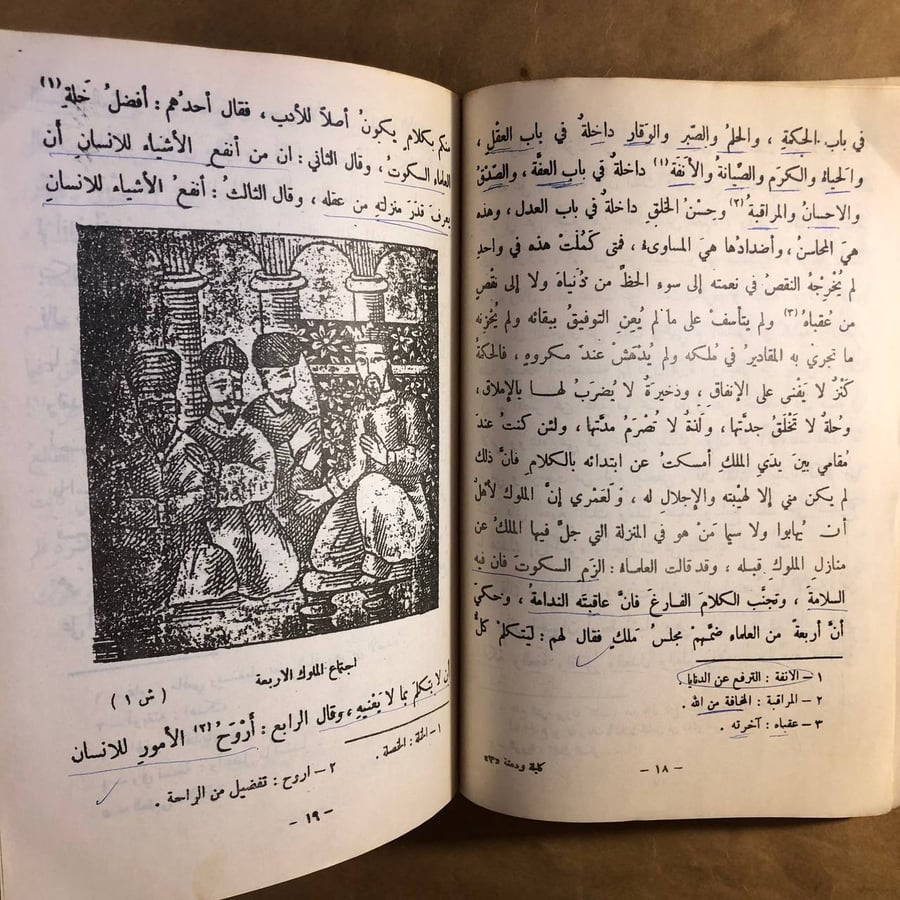 في باب الحكمة ، والحلمُ والصّبر والوقار داخلةٌ في باب العقْل ،
والحياءُ والكرَم والصِّيانةُ والأنفة(١) داخلةٌ في باب العفَّة ، والصّدْقُ
والاحسانُ والمراقبةُ(٢) وحِسْنُ الخلقِ داخلةٌ في باب العدل ، وهذه
هيَ المحاسنُ ، وأضدادُها هيَ المساوىء ، فمتى كَمُلَتْ هذه في واحدٍ
لم يُخْرِجْهُ النقصُ في نعمته إلى سوء الحظِّ من دُنياهُ ولا إلى نقْصٍ
من عُقباهُ(٣) ولم يتأسفْ على ما لم يُعِنِ التوفيقُ ببقائه ولم يُحْزِنْه
ما تجري به المقاديرُ في مُلكه ولم يُدْهَشْ عندَ مكروهٍ ، فالحكمةُ
كَنْزٌ لا يَفْنى على الإنفاق ، وذخيرَةٌ لا يُضرَبُ لها بالإملاق ،
وحُلةٌ لا تَخْلَقُ جدتُها ، ولَذةٌ لا تُصْرَمُ مدتُها ، ولئن كنتُ عندَ
مُقامي بينَ يدَي الملك أمسكتُ عن ابتدائه بالكلام فانَّ ذلك
لم يكن مني إلا لهيْبته والإجلال له ، ولَعَمْري إنَّ الملوك لأهلٌ
أن يُهابوا ولا سيما مَنْ هو في المنزلة التي جلَّ فيها الملكُ عن
منازلِ الملوكِ قبله ، وقد قالت العلماءُ : الزَم السكوتَ فان فيه
السلامةَ ، وتجنَّب الكلامَ الفارغَ فانَّ عاقبتَه الندامةُ ، وحكيَ
أنَّ أربعةً من العلماء ضمَّهمْ مجلسُ مَلكٍ فقال لهم : ليَتكلمْ كلٌّ
١ – الانفة : الترفع عن الدنايا .
٢ – المراقبة : المخافة من الله .
٣ – عقباه : آخرته .
كليلة ودمنة «٢»
– ١٨ –
منكم بكلامٍ يكونُ أصلاً للأدب ، فقال أحدُهم : أفضلُ خَلةِ(١)
العلماء السكوتُ ، وقال الثاني : ان من أنفع الأشياء للانسانِ أن
يعرفَ قدرَ منزلتهِ من عقله ، وقال الثالثُ : أنفعُ الأشياء للانسانِ
اجتماع الملوك الاربعة
( ش ١ )
أن لا يتكلمَ بما لا يَعْنيهِ ، وقال الرابع : أرْوَحُ(٢) الأمورِ للانسان
١ – الخلة : الخصلة .
٢ – اروح : تفضيل من الراحة .
– ١٩ –